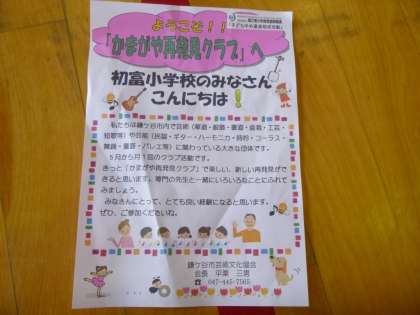 ようこそ！！
「かまがや再発見クラブ」へ
初富小学校のみなさん
こんにちは！
私たちは鎌ケ谷市内で芸術（華道・
短歌等）や芸能（民謡・ギター・ハーモニカ・詩吟・コーラス・
バレエ等）に関わっている大きな団体です。
５月から月１回のクラブ活動です。
きっと「かまがや再発見クラブ」で楽しい、新しい再発見がで
きると思います。専門の先生と一緒にいろいろなことにふれて
みましょう。
みなさんにとって、とても良い経験になると思います。
ぜひ、ご参加くださいね。
鎌ケ谷市芸術文化協会
会長　平栗　三男
☎ 047-445-7565